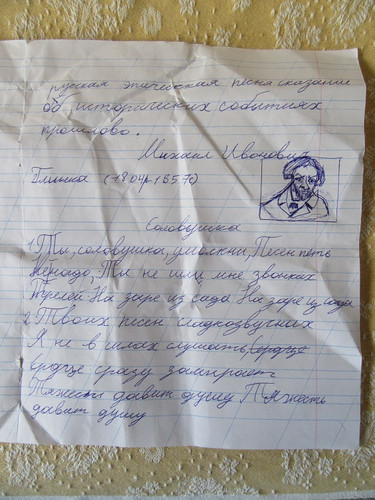 русская эпическая песня сказание
об исторических событиях
прошлово.
Михаил Иванович
Глинка (1804г-1857г)
Соловушка
1. Ты, соловушка, умолкни, Песен петь
ненадо, Ты не шли мне звонких
Трелей На заре из сада На заре из сада
2. Твоих песен сладкозвучных
Я не в силах слушать, сердце
сердце сразу замирает
Тяжесть давит душу Тяжесть
давит душу